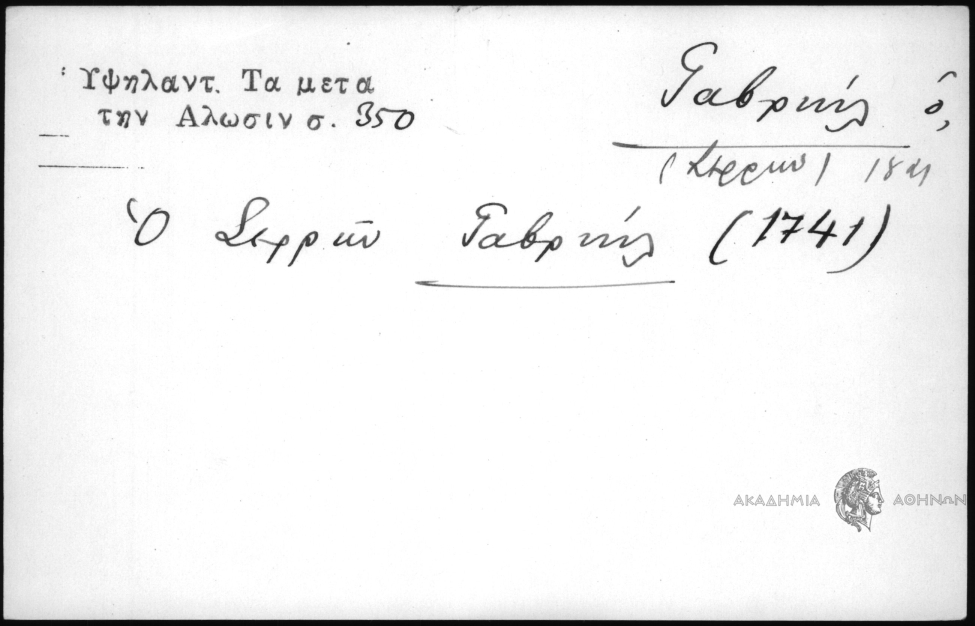 Ὑψηλαντ. Τα μετα
την Αλωσιν σ. 350
Γαβριήλ ὁ,
(Σερρῶν)
Ὁ Σερρῶν Γαβριήλ (1741)
ΑΚΑΔΗΜΙΑ ΑΘΗΝΩΝ